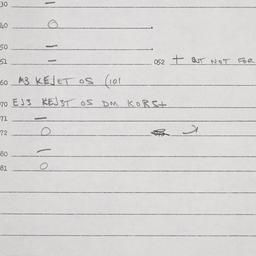 30 —
40 O
50 —
51 — 052 + BUT NOT FOR
60 A3 KEJET OS (101
70 EJ3 KEJST OS DM KORS+
71 —
72 O
80 —
81 O